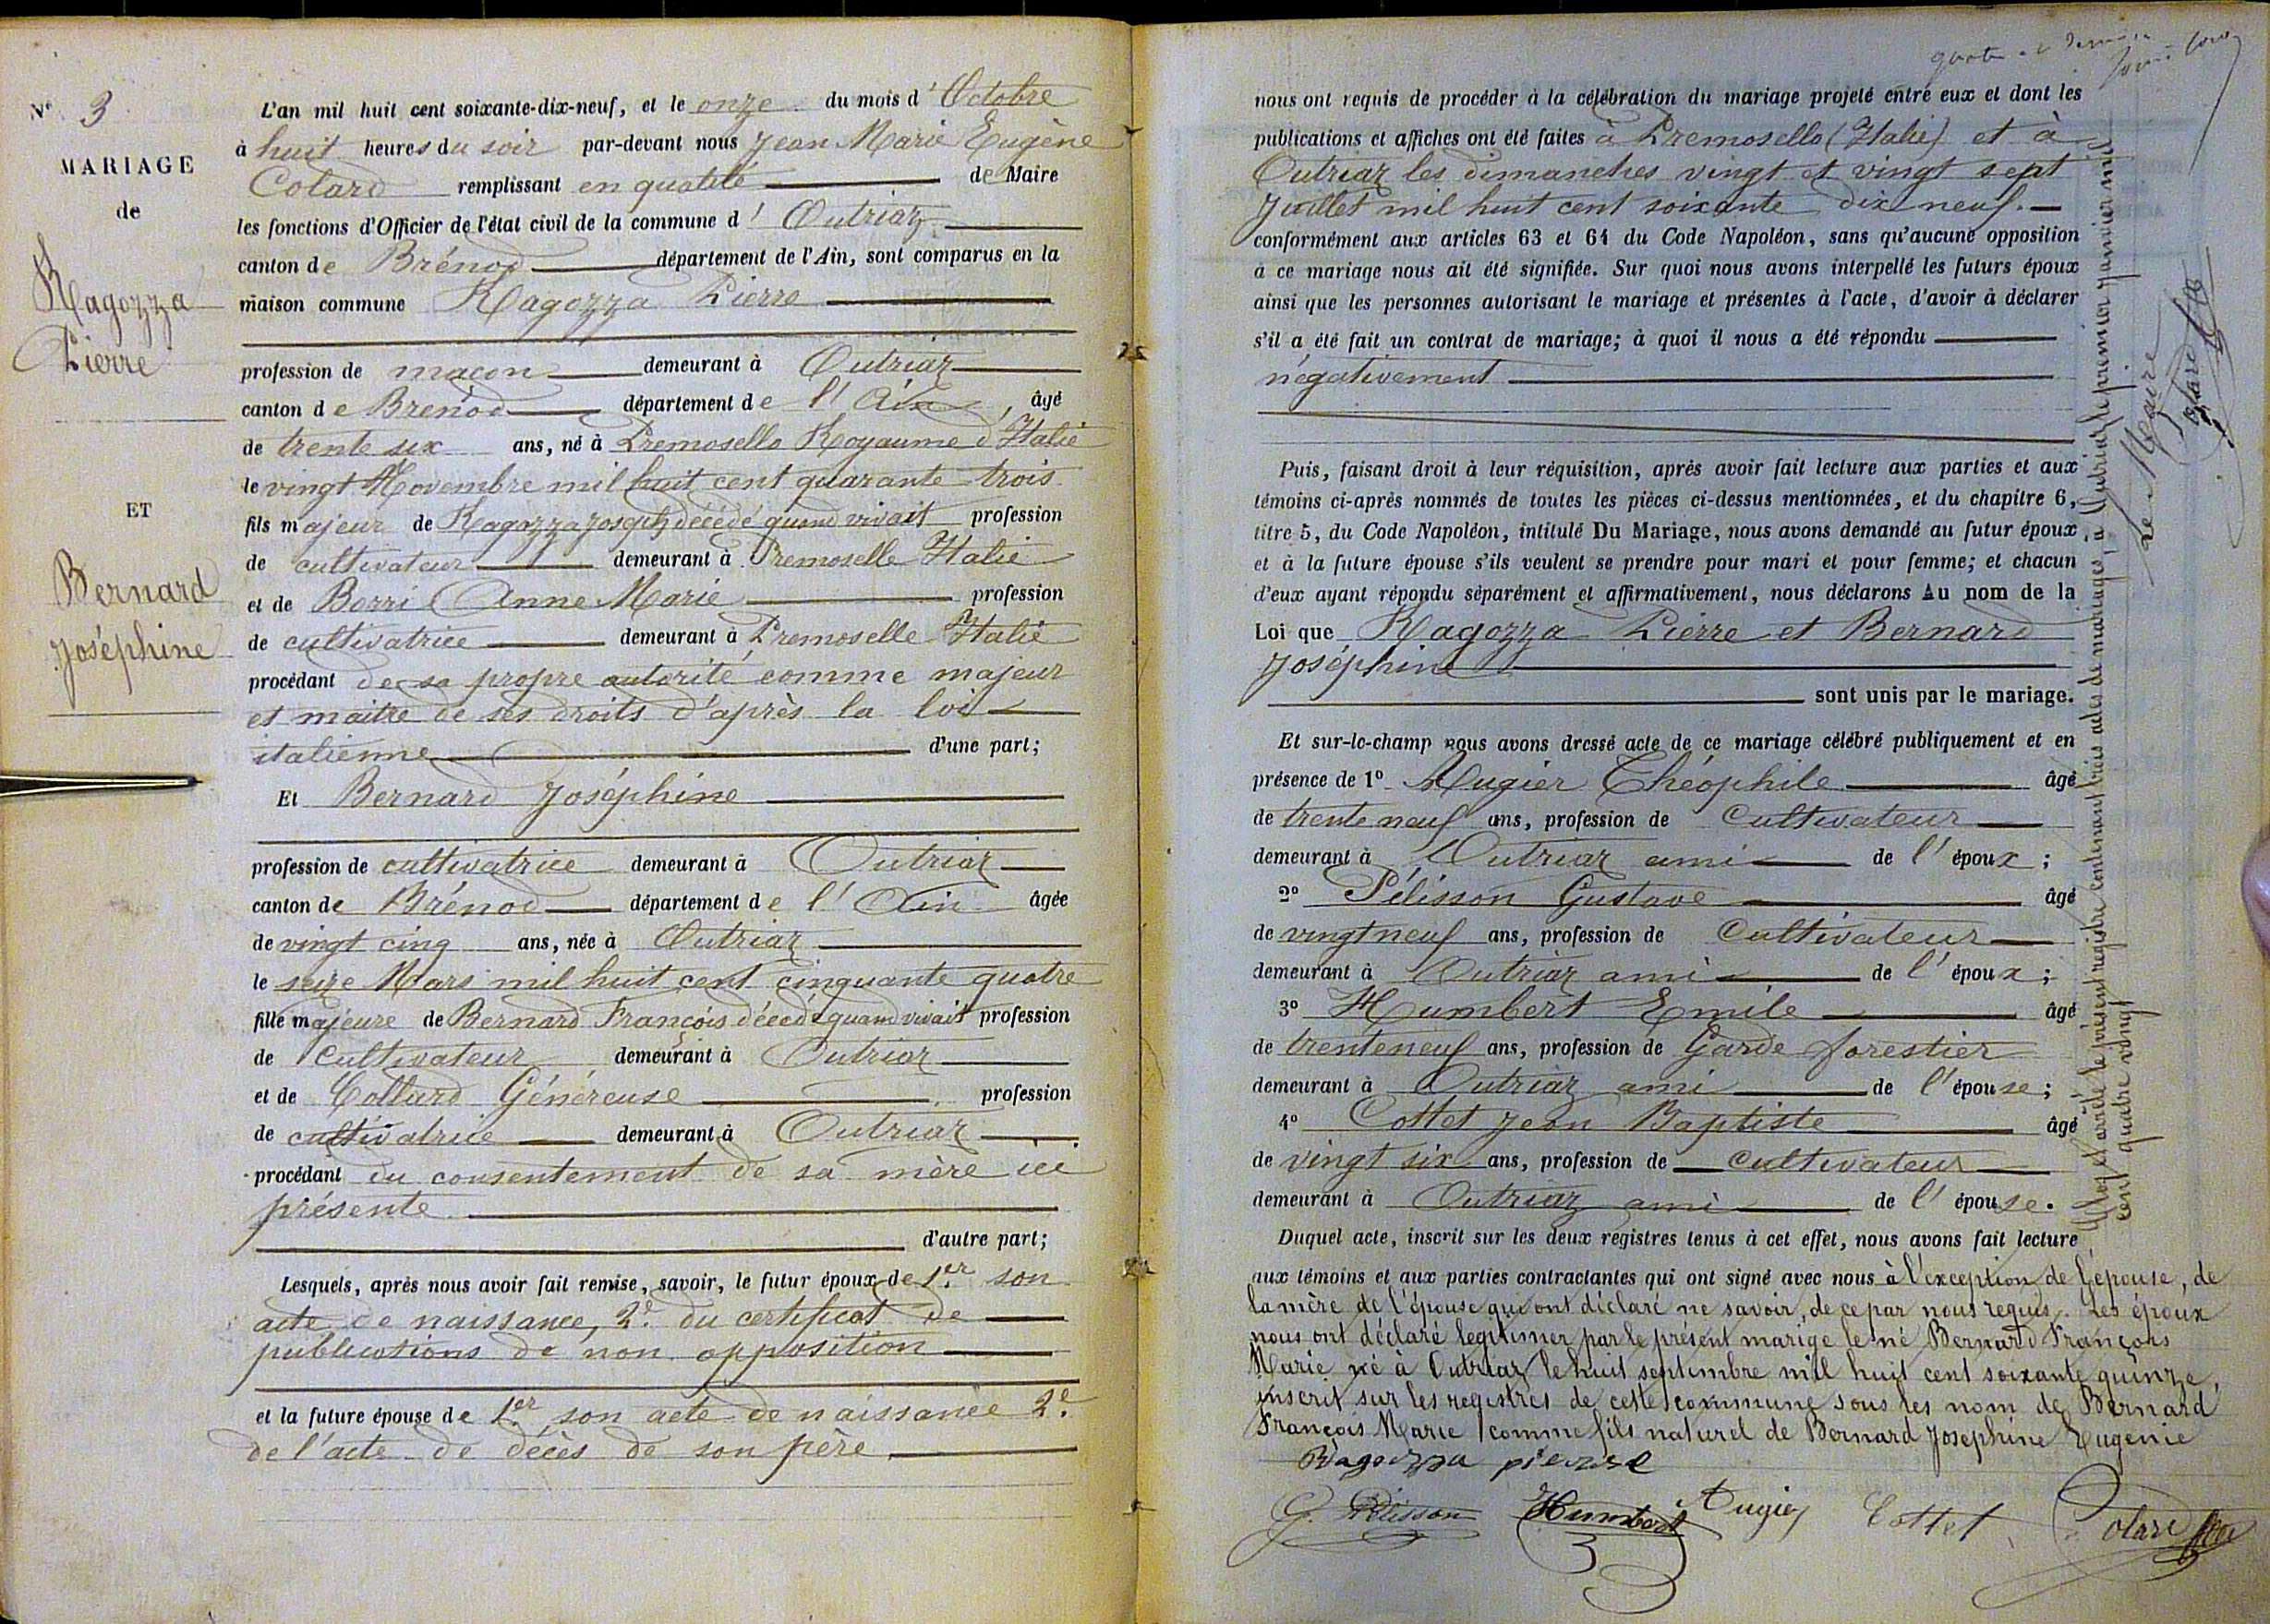 N° 3
MARIAGE
de
Ragozza
Pierre
ET
Bernard
Joséphine
L'an mil huit cent soixante-dix-neuf, et le onze du mois d'Octobre
à huit heures du soir par-devant nous Jean Marie Eugène
Colard remplissant en qualité de Maire
les fonctions d'Officier de l'état civil de la commune d'Outriaz
canton de Brénod département de l'Ain, sont comparus en la
maison commune Ragozza Pierre
profession de maçon demeurant à Outriaz
canton de Brénod département de l'Ain, âgé
de trente six ans, né à Premosello Royaume d'Italie
le vingt Novembre mil huit cent quarante trois
fils majeur de Ragozza Joseph décédé quand vivait profession
de cultivateur demeurant à Premoselle Italie
et de Borri Anne Marie profession
de cultivatrice demeurant à Premoselle Italie
procédant de sa propre autorité comme majeur
et maitre de ses droits d'après la loi
italienne d'une part;
Et Bernard Joséphine
profession de cultivatrice demeurant à Outriaz
canton de Brénod département de l'Ain âgée
de vingt cinq ans, née à Outriaz
le seize Mars mil huit cent cinquante quatre
fille majeure de Bernard François décédé quand vivait profession
de Cultivateur demeurant à Outriaz
et de Collard Généreuse profession
de cultivatrice demeurant à Outriaz
procédant du consentement de sa mère ici
présente
d'autre part;
Lesquels, après nous avoir fait remise, savoir, le futur époux de 1er son
acte de naissance, 2e du certificat de
publications de non opposition
et la future épouse de 1er son acte de naissance 2e
de l'acte de décès de son père
nous ont requis de procéder à la célébration du mariage projeté entre eux et dont les
publications et affiches ont été faites à Premosello (Italie) et à
Outriaz les dimanches vingt et vingt sept
Juillet mil huit cent soixante dix neuf.
conformément aux articles 63 et 64 du Code Napoléon, sans qu'aucune opposition
à ce mariage nous ait été signifiée. Sur quoi nous avons interpellé les futurs époux
ainsi que les personnes autorisant le mariage et présentes à l'acte, d'avoir à déclarer
s'il a été fait un contrat de mariage; à quoi il nous a été répondu
négativement
Puis, faisant droit à leur réquisition, après avoir fait lecture aux parties et aux
témoins ci-après nommés de toutes les pièces ci-dessus mentionnées, et du chapitre 6,
titre 5, du Code Napoléon, intitulé Du Mariage, nous avons demandé au futur époux
et à la future épouse s'ils veulent se prendre pour mari et pour femme; et chacun
d'eux ayant répondu séparément et affirmativement, nous déclarons Au nom de la
Loi que Ragozza Pierre et Bernard
Joséphine
sont unis par le mariage.
Et sur-le-champ nous avons dressé acte de ce mariage célébré publiquement et en
présence de 1° Augier Théophile âgé
de trente neuf ans, profession de Cultivateur
demeurant à Outriaz ami de l'époux;
2° Pélisson Gustave âgé
de vingt neuf ans, profession de Cultivateur
demeurant à Outriaz ami de l'époux;
3° Humbert Emile âgé
de trente neuf ans, profession de Garde forestier
demeurant à Outriaz ami de l'épouse;
4° Cottet Jean Baptiste âgé
de vingt six ans, profession de cultivateur
demeurant à Outriaz ami de l'épouse.
Duquel acte, inscrit sur les deux registres tenus à cet effet, nous avons fait lecture
aux témoins et aux parties contractantes qui ont signé avec nous à l'exception de l'épouse, de
la mère de l'épouse qui ont déclaré ne savoir, de ce par nous requis. Les époux
nous ont déclaré legitimer par le présent marige le né Bernard François
Marie né à Outriaz le huit septembre mil huit cent soixante quinze,
inscrit sur les registres de cette commune sous les nom de Bernard
François Marie comme fils naturel de Bernard Josephine Eugenie
Ragozza pierre
G. Pélisson Humbert Augier Cottet Colard
Clos et arrêté le présent registre contenant trois actes de mariages, à Outriaz le premier janvier mil
cent quatre vingt
Le Maire
Colard